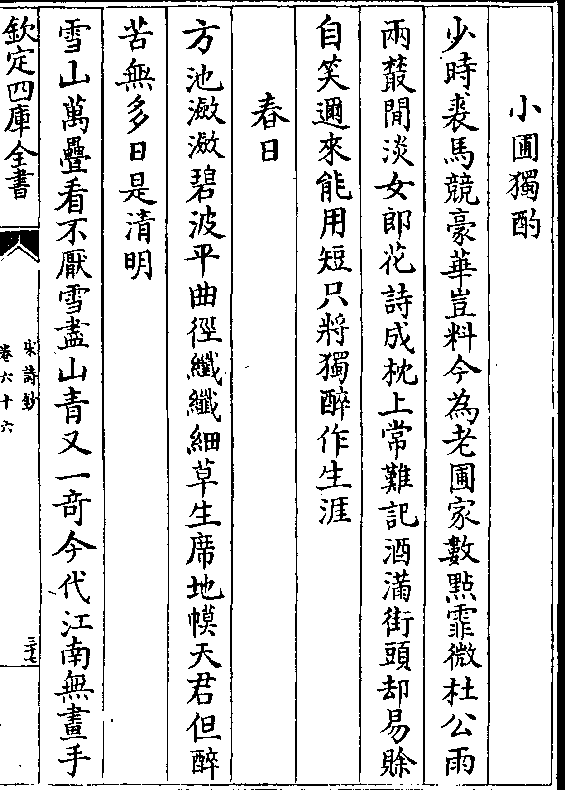 小圃獨酌
少時裘馬競豪華豈料今為老圃家數點霏微杜公雨
兩叢閒淡女郎花詩成枕上常難記酒滿街頭却易賒
自笑邇來能用短只將獨醉作生涯
春日
方池瀲瀲碧波平曲徑纖纖細草生席地幙天君但醉
苦無多日是清明
雪山萬疊看不厭雪盡山青又一奇今代江南無畫手
欽定四庫全書
宋詩鈔
卷六十六
三十七